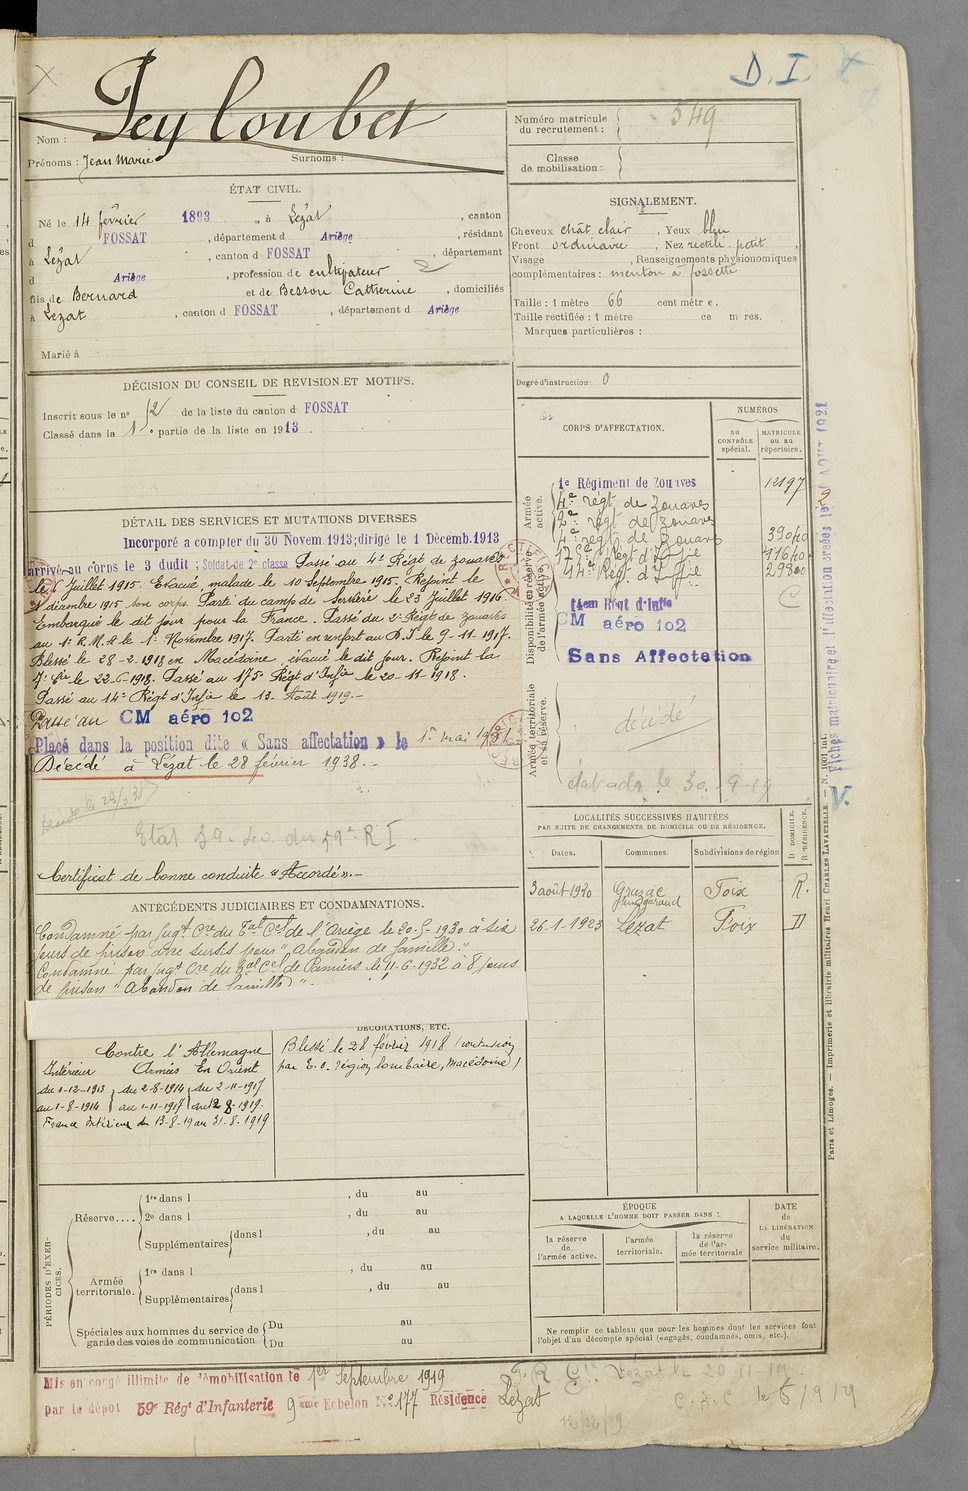 D. I.
Peyloubet
Nom :
Prénoms : Jean Marie Surnoms :
Numéro matricule du recrutement : 549
Classe de mobilisation :
ÉTAT CIVIL.
Né le 14 février 1893, à Lézat, canton
d FOSSAT, département d Ariège, résidant
à Lézat, canton d FOSSAT, département
d Ariège, profession de cultivateur
fils de Bernard et de Besson Catherine, domiciliés
à Lezat, canton d FOSSAT, département d Ariège
Marié à
SIGNALEMENT.
Cheveux chât. clair, Yeux bleu
Front ordinaire, Nez rectil. petit,
Visage , Renseignements physionomiques
complémentaires : menton à fossette
Taille : 1 mètre 66 centimètre.
Taille rectifiée : 1 mètre ce m res.
Marques particulières :
Degré d'instruction : 0
DÉCISION DU CONSEIL DE REVISION ET MOTIFS.
Inscrit sous le n° 52 de la liste du canton d FOSSAT
Classé dans la 1e partie de la liste en 1913.
DÉTAIL DES SERVICES ET MUTATIONS DIVERSES
Incorporé a compter du 30 Novem. 1913; dirigé le 1 Décemb. 1913
arrivé au corps le 3 dudit ; Soldat de 2e classe Passé au 4e Régt de zouaves
le 6 Juillet 1915. Evacué malade le 10 Septembre 1915. Rejoint le
décembre 1915 son corps. Parti du camp de le 23 Juillet 1916
Embarqué le dit jour pour la France. Passé du 2e Régt de zouaves
au 1er R. M. A le 1er Novembre 1917. Parti en renfort au le 9-11-1917.
Blessé le 28-2-1918 en Macédoine, évacué le dit jour. Rejoint la
7e Cie le 22-6-1918. Passé au 175e Régt d'Infie le 20-11-1918.
Passé au 14e Régt d'Infie le 13 Août 1919.-
Passé au CM aéro 102
Placé dans la position dite « Sans affectation » le 1er mai 1931
Décédé à Lézat le 28 février 1938.-
Etat du 59e R I
Certificat de bonne conduite "Accordé".-
CORPS D'AFFECTATION.
NUMÉROS
au CONTRÔLE spécial.
MATRICULE ou au répertoire.
Armée active.
1e Régiment de Zouaves 12197
4e régt de Zouaves
2e régt de zouaves
4e régt de Zouaves 39040
175e Régt d'Infie 11640
14e Régt d'Infie
Disponibilité et réserve de l'armée active.
14em Régt d'Infie
CM aéro 102
Sans Affectation
Armée territoriale et sa réserve.
décédé
le 30-9-19
ANTÉCÉDENTS JUDICIAIRES ET CONDAMNATIONS.
Condamné par Jugt Cre du Tal Cel de l'Ariège le 20-5-1930 à six
jours de prison avec sursis pour "Abandon de famille".
Condamné par Jugt Cre du Tal Cel de Pamiers le 11-6-1932 à 8 jours
de prison "Abandon de famille".
LOCALITÉS SUCCESSIVES HABITÉES
PAR SUITE DE CHANGEMENTS DE DOMICILE OU DE RÉSIDENCE.
Dates. Communes. Subdivisions de région D DOMICILE. R RÉSIDENCE.
3 août 1920 Grazac Foix R.
26-1-1923 Lézat Foix D
DÉCORATIONS, ETC.
Contre l'Allemagne
Intérieur Armées En Orient
du 1-12-1913 du 2-8-1914 du 2-11-1917
au 1-8-1914 au 1-11-1917 au 12-8-1919.
France intérieur du 13-8-19 au 31-8-1919
Blessé le 28 février 1918 (contusion
par E. o. région lombaire, Macédoine)
PÉRIODES D'EXERCICES.
Réserve....
1re dans l , du au
2e dans l , du au
Supplémentaires dans l , du au
Armée territoriale.
1re dans l , du au
Supplémentaires dans l , du au
Spéciales aux hommes du service de garde des voies de communication
Du au
Du au
ÉPOQUE
A LAQUELLE L'HOMME DOIT PASSER DANS :
la réserve de l'armée active.
l'armée territoriale.
la réserve de l'armée territoriale
DATE de LA LIBÉRATION du service militaire.
Ne remplir ce tableau que pour les hommes dont les services font
l'objet d'un décompte spécial (engagés, condamnés, omis, etc.).
Mis en congé illimité de démobilisation le 1er Septembre 1919
par le dépot 59e Régt d'Infanterie 9ème Echelon N° 177 Résidence Lézat
Lézat le 20-11-19
C.A.C le 6/9/19
12/12/19
Fiches matriculaire et l'affectation créées le AOUT 1921
V.
Paris et Limoges. — Imprimerie et librairie militaires Henri CHARLES-LAVAUZELLE. — N. 1001 int.